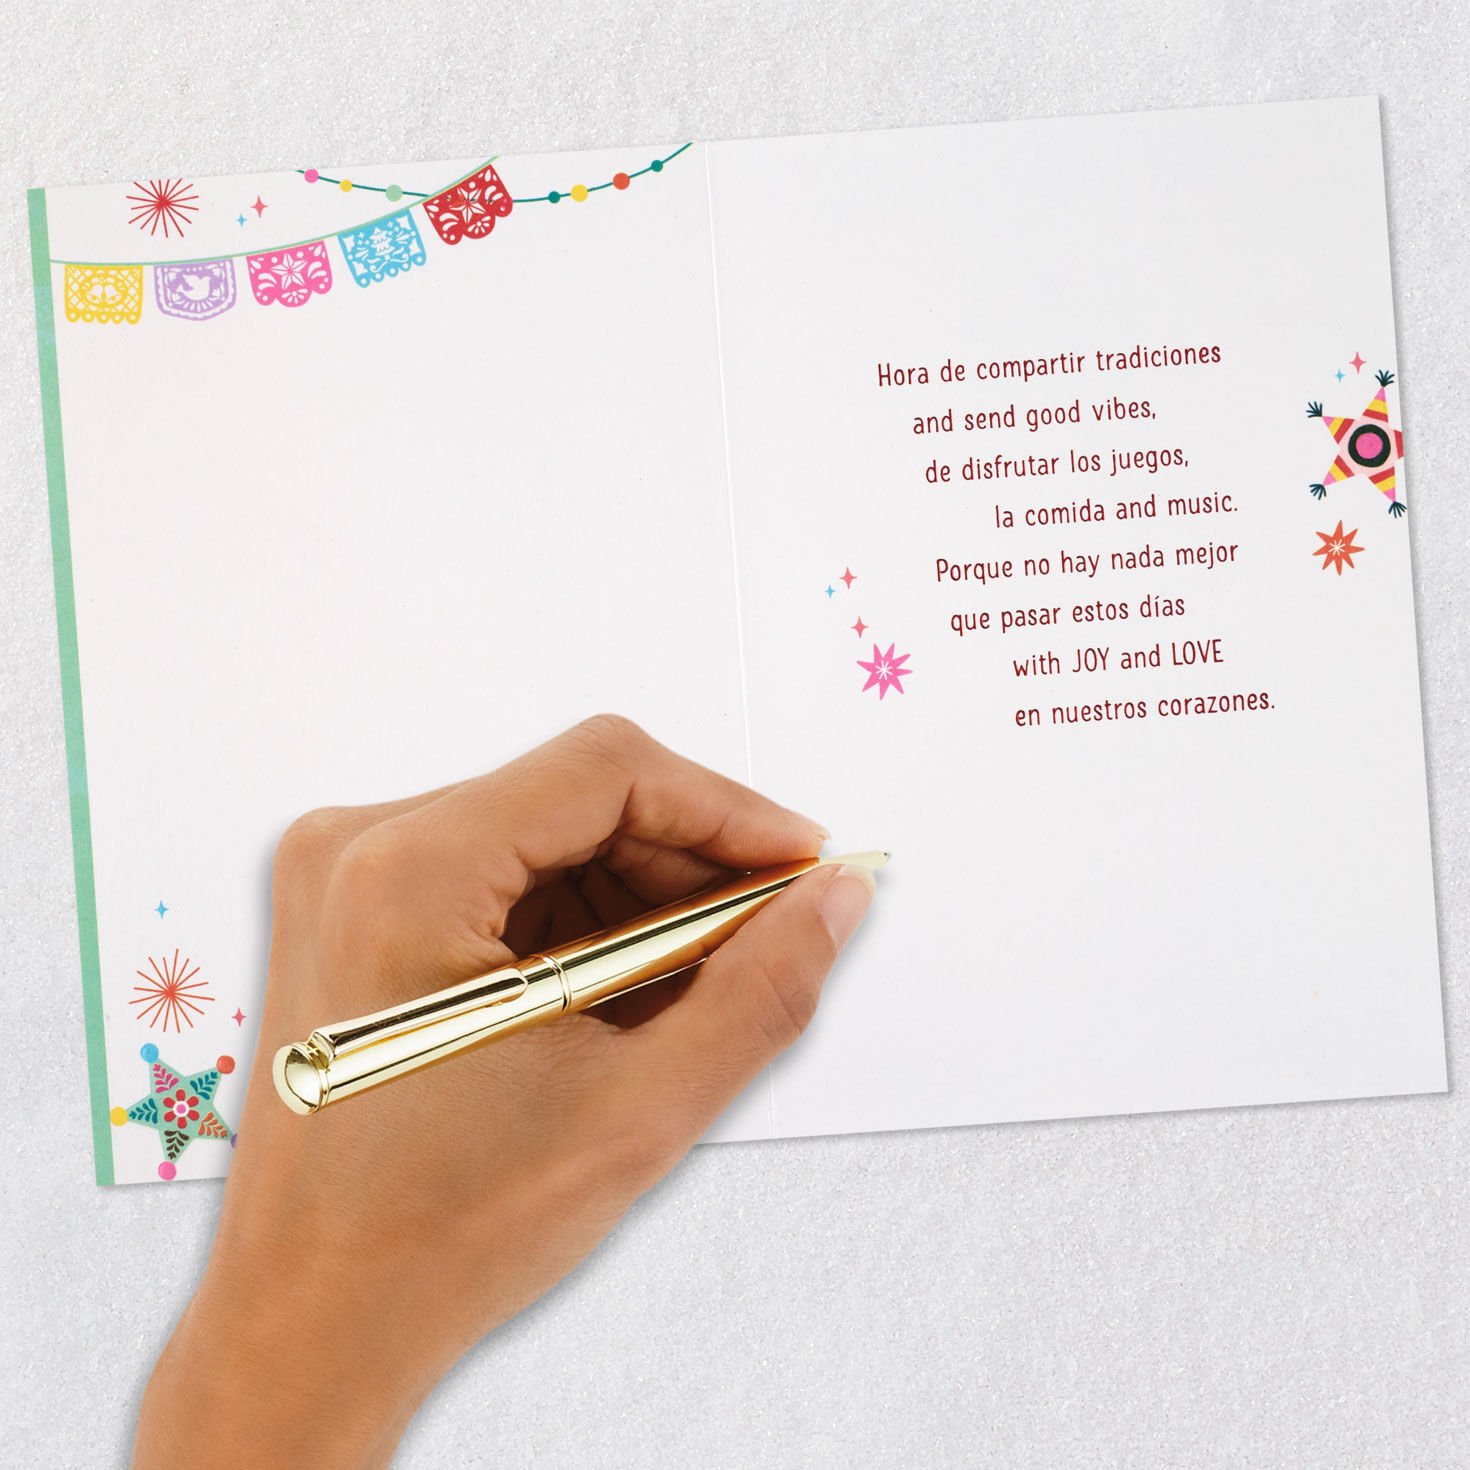 Hora de compartir tradiciones
and send good vibes,
de disfrutar los juegos,
la comida and music.
Porque no hay nada mejor
que pasar estos días
with JOY and LOVE
en nuestros corazones.